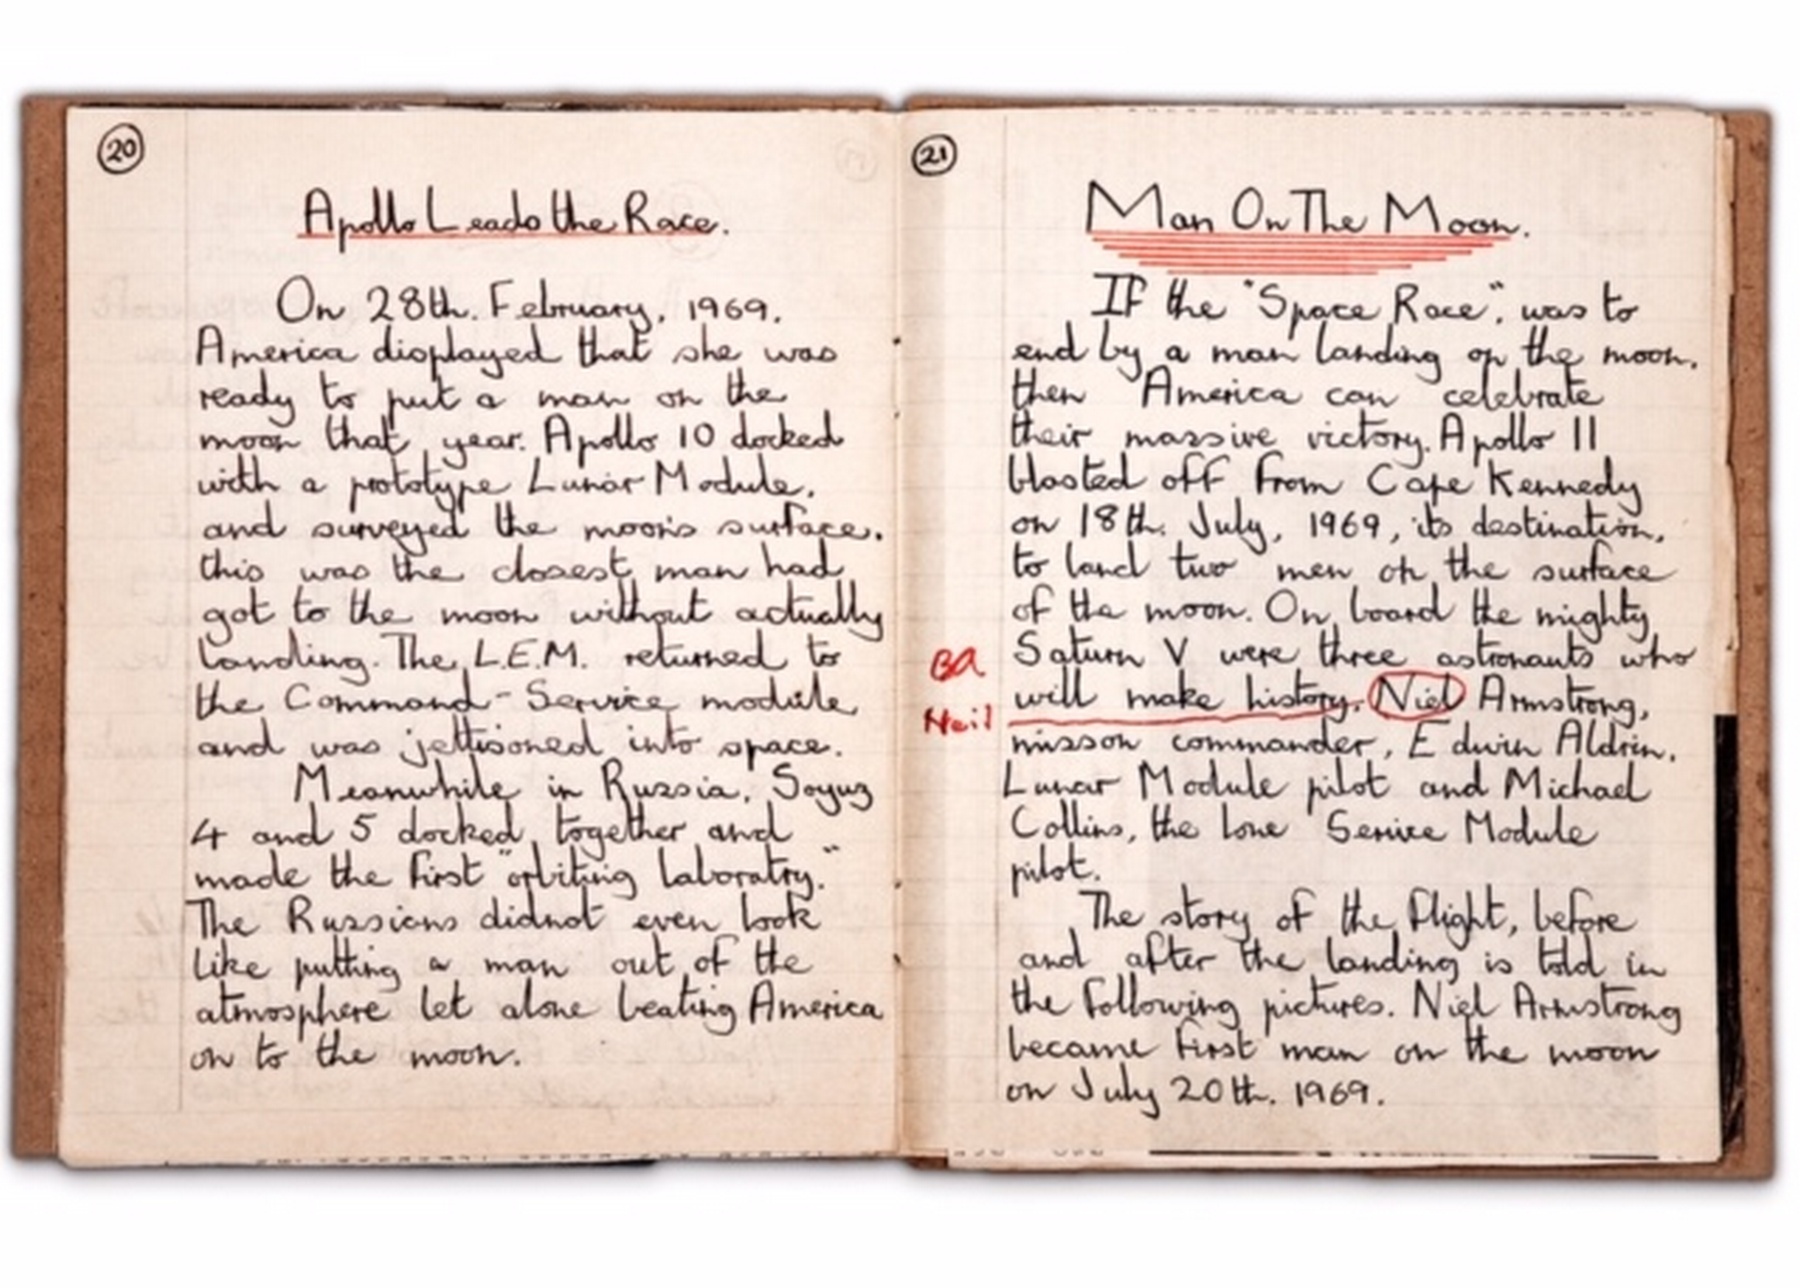 20
Apollo Leads the Race.
On 28th. February, 1969.
America displayed that she was
ready to put a man on the
moon that year. Apollo 10 docked
with a prototype Lunar Module,
and surveyed the moon's surface,
this was the closest man had
got to the moon without actually
landing. The L.E.M. returned to
the Command-Service module
and was jettisoned into space.
Meanwhile in Russia, Soyuz
4 and 5 docked together and
made the first "orbiting laboratry."
The Russians didnot even look
like putting a man out of the
atmosphere let alone beating America
on to the moon.
21
Man On The Moon.
If the "Space Race", was to
end by a man landing on the moon,
then America can celebrate
their massive victory. Apollo 11
blasted off from Cape Kennedy
on 18th. July, 1969, its destination,
to land two men on the surface
of the moon. On board the mighty
Saturn V were three astronauts who
will make history. Niel Armstrong,
Neil
misson commander, Edwin Aldrin,
Lunar Module pilot and Michael
Collins, the lone Service Module
pilot.
The story of the flight, before
and after the landing is told in
the following pictures. Niel Armstrong
became first man on the moon
on July 20th. 1969.